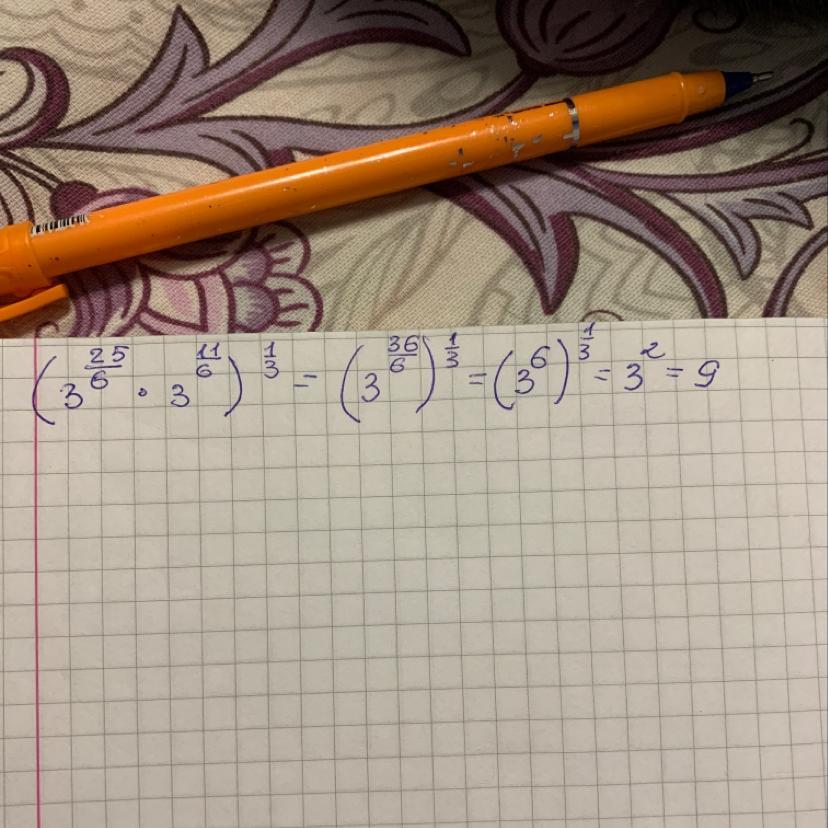 (3^{25/6} · 3^{11/6})^{1/3} = (3^{36/6})^{1/3} = (3^6)^{1/3} = 3^2 = 9